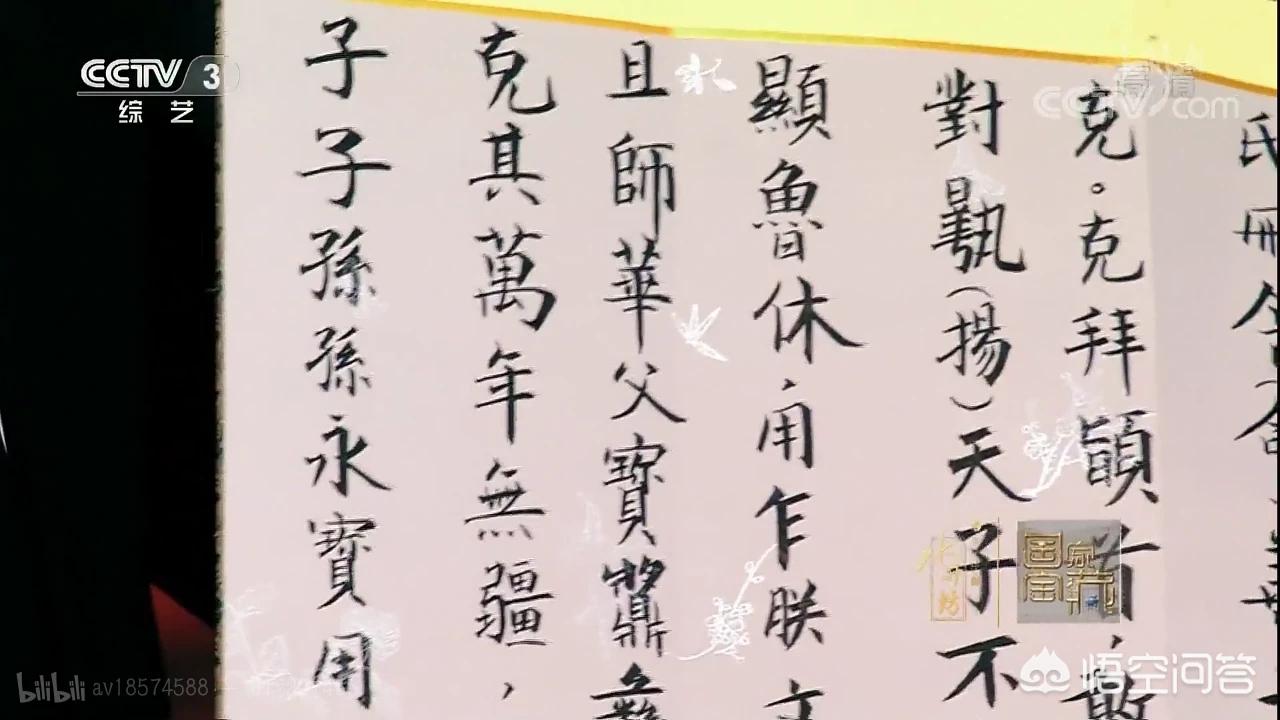 氏冊令
克。克拜首,敢
對(揚)天子不
顯魯休,用乍朕文
且師華父寶䵼彝
克其萬年無疆,
子子孫孫永寶用
CCTV 3
综艺
高清
CCTV.com
國家寶藏
bilibili av18574588
悟空问答